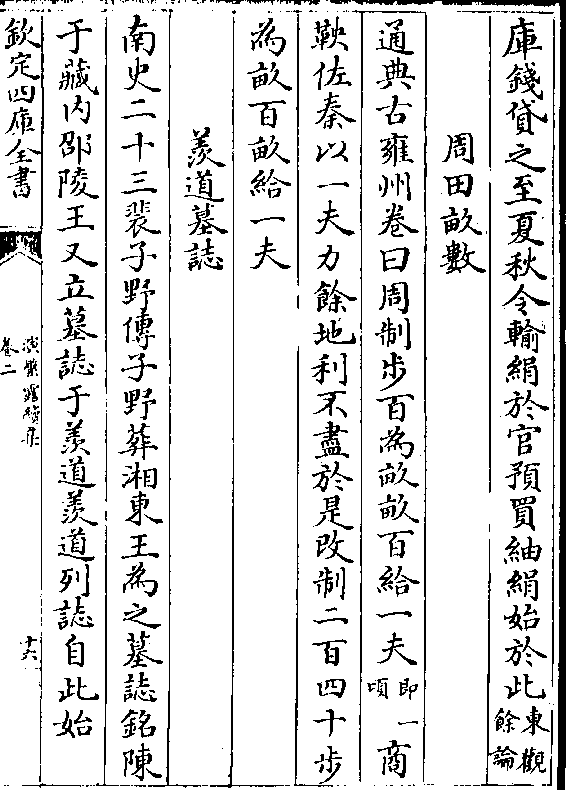 庫錢貸之至夏秋令輸絹於官預買紬絹始於此東觀餘論
周田畝數
通典古雍州卷曰周制步百為畝畝百給一夫即一頃商
鞅佐秦以一夫力餘地利不盡於是改制二百四十步
為畝百畝給一夫
羨道墓誌
南史二十三裴子野傳子野葬湘東王為之墓誌銘陳
于藏内邵陵王又立墓誌于羨道羨道列誌自此始
欽定四庫全書
演繁露續集
卷二
十六